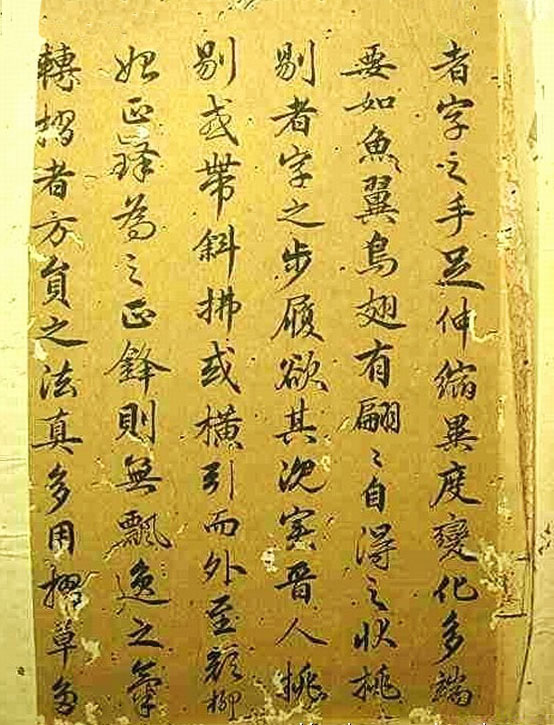 者字之手足伸縮異度變化多端
要如魚翼鳥翅有翩〻自得之狀挑
剔者字之步履欲其沉實晉人挑
剔或帶斜拂或橫引而外至顏柳
始正鋒為之正鋒則無飄逸之氣
轉摺者方員之法真多用摺草多